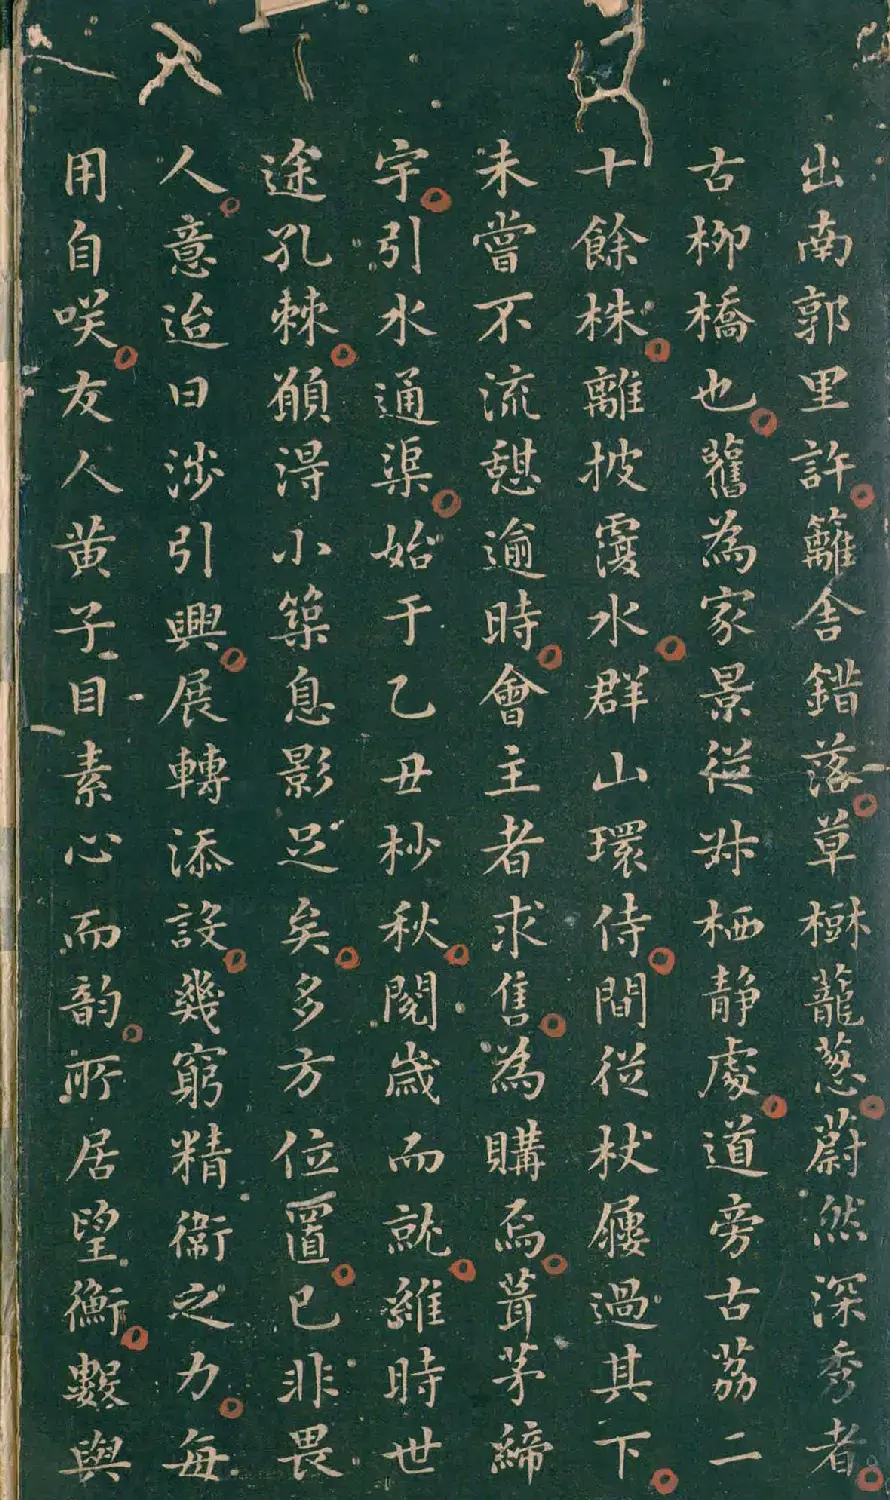 出南郭里許籬舍錯落草樹蘢蔥蔚然深秀者
古柳橋也舊為家景從叔栖静處道旁古荔二
十餘株離披覆水群山環侍間從杖屨過其下
未嘗不流憇逾時會主者求售為購焉葺茅締
宇引水通渠始于乙丑杪秋閱歲而就維時世
途孔棘願得小築息影足矣多方位置已非畏
人意迨日涉引興展轉添設幾窮精衞之力每
用自咲友人黄子目素心而韵所居望衡數與